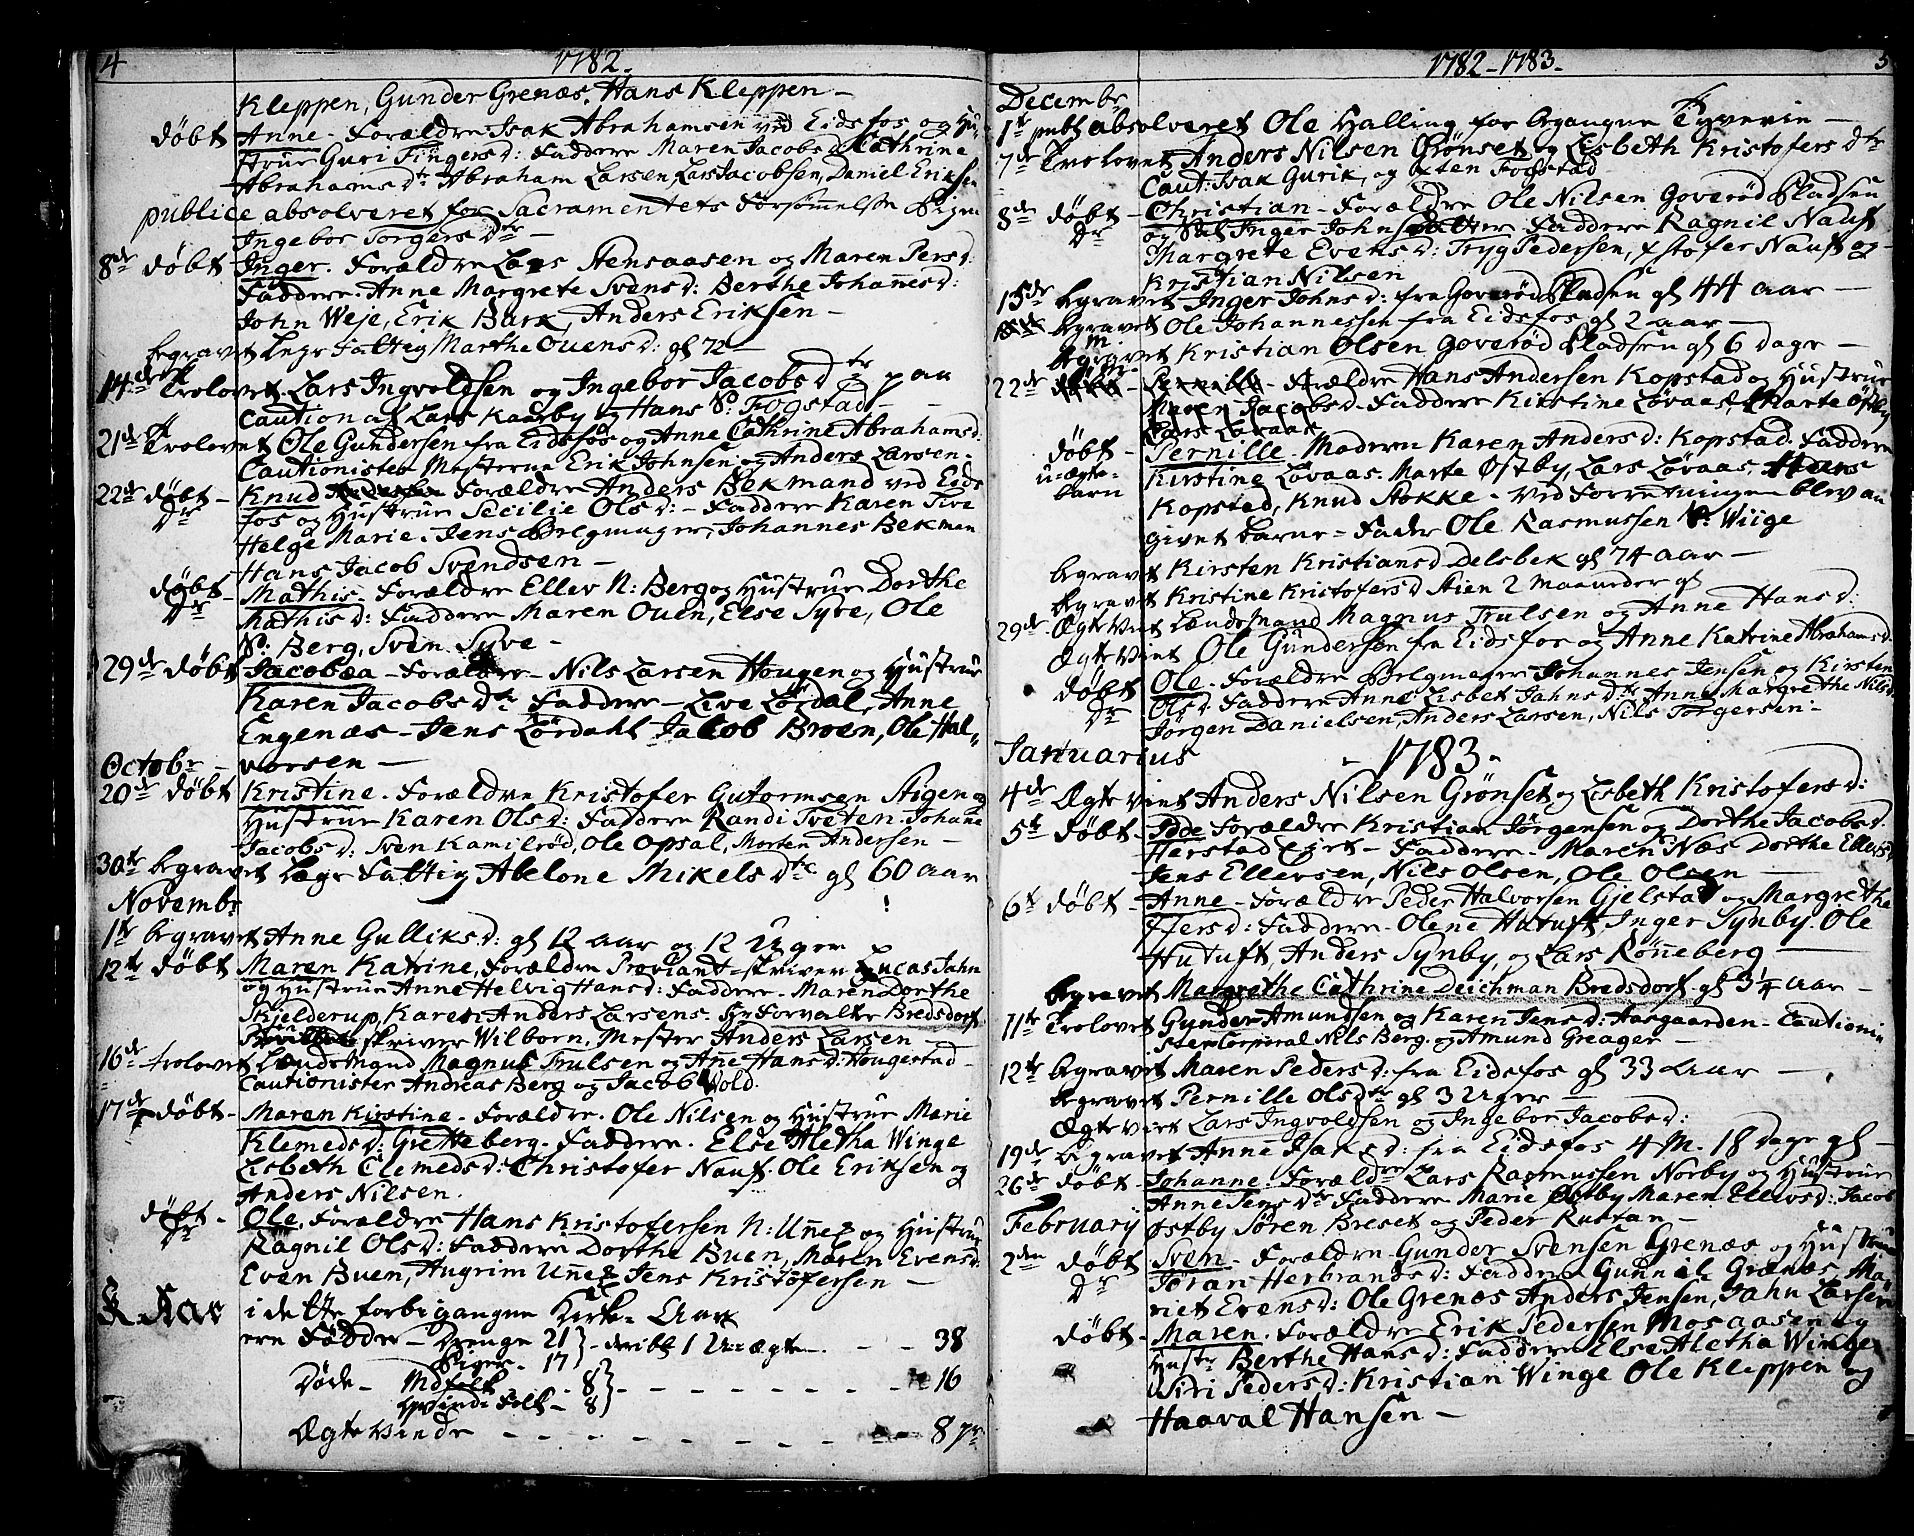 4
1782.
Kleppen, Gunder Grenæs, Hans Kleppen –
døbt Anne – Forældre Isak Abrahamsen ved Eidsfos og Hu-
strue Guri Fingersd: Faddere Maren Jacobsd Cathrine
Abrahamsdtr Abraham Larsen, Lars Jacobsen, Daniel Eriksen
publice absolveret for Sacramentets Forsømmelse Pigen
Ingebor Torgersdtr –
8de døbt Inger. Forældre Lars Stensaasen og Maren Persd:
Faddere. Anne Margrete Svensd: Berthe Johannesd:
John Weje, Erik Bark, Anders Eriksen –
begravet Lægs Fattig Marthe Ouensd: gl 72 –
14de Trolovet Lars Ingvoldsen og Ingebor Jacobsdtr paa
Caution af Lars Kamby og Hans P: Fogstad –
21de Trolovet Ole Gundersen fra Eidsfos og Anne Cathrine Abrahamsd:
Cautionister Mesterne Erik Johnsen og Anders Larsen.
22de døbt – Knud Forældre Anders Bekmand ved Eids
fos og Hustrue Secilie Olsd: – Faddere Karen
Helge Marie. Jens Belgmager, Johannes Bekman
Hans Jacob Svendsen –
døbt – Mathis. Forældre Ellev N: Berg og Hustrue Dorthe
Dr Mathisd: Faddere Maren Ouen, Else Syve, Ole
P: Berg, Sven Syve –
29de døbt Jacobæa – Forældre – Nils Larsen Hougen og Hustrue
Karen Jacobsdtr Faddere – Live Lørdal, Anne
Engenæs – Jens Lørdahl Jacob Broen, Ole Hal-
Octobr – vorsen –
20de døbt Kristine. Forældre Kristofer Gutormsen Stigen og
Hustrue Karen Olsd: Faddere Randi Tveten. Johanne
Jacobsd: Sven Kamilrød, Ole Opsal, Morten Andersen –
30te begravet Lægs Fattig Abelone Mikelsdtr gl 60 aar
Novembr
1te begravet Anne Gulliksd: gl 12 aar og 12 Uger
12te døbt Maren Katrine, Forældre Proviant-skriver Lucas Jahn
og Hustrue Anne Helvig Hansd: Faddere. Maren Dorthe
Skjelderup, Karen Anders Larsens. Hr Forvalter Bredsdorf
skriver Wilborn, Mester Anders Larsen –
16de trolovet Lændsmand Magnus Trulsen og Anne Hansd: Hougestad
Cautionister Andreas Berg og Jacob Vold.
17de døbt – Maren Kirstine – Forældre. Ole Nilsen og Hustrue Marie
Klemedsd: Gretteberg. Faddere. Else Aletha Winge
Lisbeth Clemedsd: Christofer Nauf, Ole Eriksen og
Anders Nilsen.
døbt – Ole, Forældre Hans Kristofersen N: Unef og Hustrue
Dr Ragnil Olsd: Faddere Dorthe Buen, Maren Evensd:
Even Buen, Augrim Unef Jens Kristofersen –
i dette forbigangne Kirke-Aar
ere Fødde – Drenge 21 } – deribl 1 Uægte – – – 38
Piger – 17
Døde – Mdfolk – 8 } – – – – – – 16
Qvinde Folk – 8
Ægteviede – – – – – – – – 8 Pr
1782–1783.
5
Decembr
1te publ absolveret Ole Halling for begangne Tyverie –
7de Trolovet Anders Nilsen Grønset og Lisbeth Kristofersdtr
Caut: Isak Gurik, og Osten Fogstad
8de døbt – Christian – Forældre Ole Nilsen Goverød Pladsen
Dr og Sal Inger Johnsdatter Faddere Ragnil Nauf
Margrete Evensd: Tryg Pedersen, Kstofer Nauf og
Kristian Nilsen
15de begravet Inger Johnsd: fra Goverød Pladsen gl 44 aar –
begravet Ole Johannessen fra Eidsfos gl 2 aar –
begravet Kristian Olsen Goverød Pladsen gl 6 dage –
22de døbt – Pernille – Forældre Hans Andersen Kopstad og Hustrue
Maren Jacobsd – Faddere Kirstine Løvaas, Marte Østby
Lars Løvaas
døbt – Pernille. Moderen Karen Andersd: Kopstad. Faddere
uægte- Kirstine Løvaas. Marte Østby, Lars Løvaas. Hans
barn Kopstad, Knud Stokke – ved Forretningen blev an
givet barne-Fader Ole Rasmussen P: Wiige
begravet Kirsten Kristiansd Delsbek gl 74 aar –
begravet Kristine Kristofersd Stien 2 Maaneder gl
29de Ægteviet Lændsmand Magnus Trulsen og Anne Hansd:
Ægteviet Ole Gundersen fra Eidsfos og Anne Katrine Abrahamsd:
døbt Ole. Forældre Belgmager Johannes Jensen og Kirsten
Dr Olsd: Faddere Anne Lisbet Jahnsdtr Anne Margrethe Nilsd:
Jørgen Danielsen, Anders Larsen, Nils Torgersen –
Januarius – 1783 –
4de Ægteviet Anders Nilsen Grønset og Lisbeth Kristofersd:
5te døbt – Forældre Kristian Jørgensen og Dorthe Jacobsd:
Herstad Eiet – Faddere. Maren Næs Dorthe Ellevsd:
Jens Ellevsen, Nils Olsen, Ole Olsen –
6te døbt – Anne – Forældre Peder Halvorsen Gjelstad og Margrethe
Ifersd: Faddere – Olene Hutuft Inger Synby. Ole
Hutuft, Anders Synby, og Lars Rønneberg –
begravet Margrethe Cathrine Deichman Bredsdorf. gl 3¼ aar –
11te Trolovet Gunder Amundsen og Karen Jensd: Aasgaarden – Cautioni-
ster Corporal Nils Berg. og Amund Greager –
12te begravet Maren Pedersd: fra Eidsfos gl 33 Aar –
begravet Pernille Olsdtr gl 3 Uger –
Ægteviet Lars Ingvoldsen og Ingebor Jacobsd:
19de begravet Anne Isaksd: fra Eidsfos 4 M. 18 Dage gl –
26de døbt – Johanne. Forældre Lars Rasmussen Norby og Hustrue
Anne Jensdtr Faddere Marie Østby Maren Ellevsd: Jacob
February Østby Søren Breset og Peder Rustan –
2den døbt Sven – Forældre – Gunder Svensen Grenæs og Hustrue
Dr Jøran Herbrandsd: Faddere Gunnil Grenæs, Ma-
riet Evensd: Ole Grenæs Anders Jensen, Jahn Larsen
døbt – Maren. Forældre Erik Pedersen Mosaasen og
Hustr Berthe Hansd: Faddere Else Aletha Winge
Siri Pedersd: Kristian Winge Ole Kleppen og
Haaval Hansen –